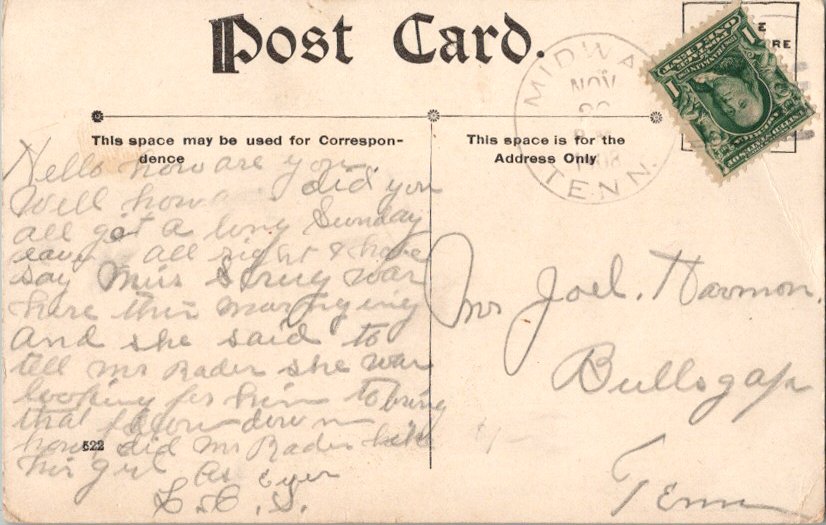 Post Card.
MIDWA
NOV
TENN.
This space may be used for Correspon-
dence
This space is for the
Address Only
Hello how are you
Well how did you
all get a long Sunday
eavn all right I hope
say Miss was
here this mor
and she said to
tell Mr Rader she was
looking for him to bring
that down
how did Mr Rader like
his girl As ever
L. C. S.
522
Mr Joel. Harmon.
Bullsgap
Tenn